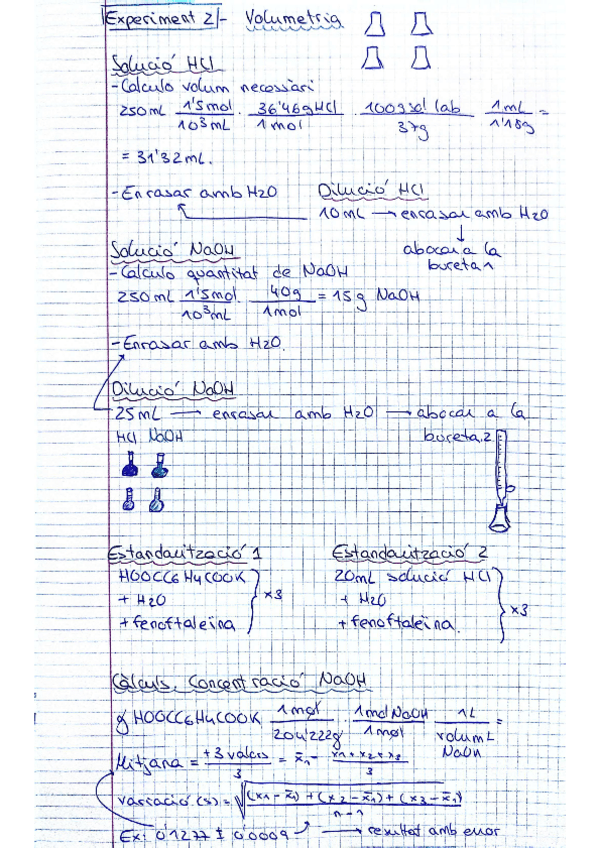 Experiment 2 - Volumetria
Solució HCl
- Calculo volum necessàri
250mL 1'5mol/10³mL · 36'46gHCl/1mol · 100gsol lab/37g · 1mL/1'18g =
= 31'32mL.
- Enrasar amb H2O
Dilució HCl
10mL → enrasar amb H2O
↓
abocar a la
bureta 1
Solució NaOH
- Calculo quantitat de NaOH
250mL 1'5mol/10³mL · 40g/1mol = 15g NaOH
- Enrasar amb H2O.
Dilució NaOH
25mL → enrasar amb H2O → abocar a la
bureta 2.
HCl NaOH
Estandarització 1
HOOCC6H4COOK
+ H2O
+ fenoftaleina
x3
Estandarització 2
20mL solució HCl
+ H2O
+ fenoftaleïna.
x3
Càlculs. Concentració NaOH
g HOOCC6H4COOK 1mol/204'222g · 1molNaOH/1mol · 1L/volumL NaOH =
Mitjana = +3 valors/3 = x̄1 = x1+x2+x3/3
variació (s) = √(x1-x̄1)+(x2-x̄1)+(x3-x̄1)/n-1
Ex: 0'1277 ± 0'0009 → resultat amb error